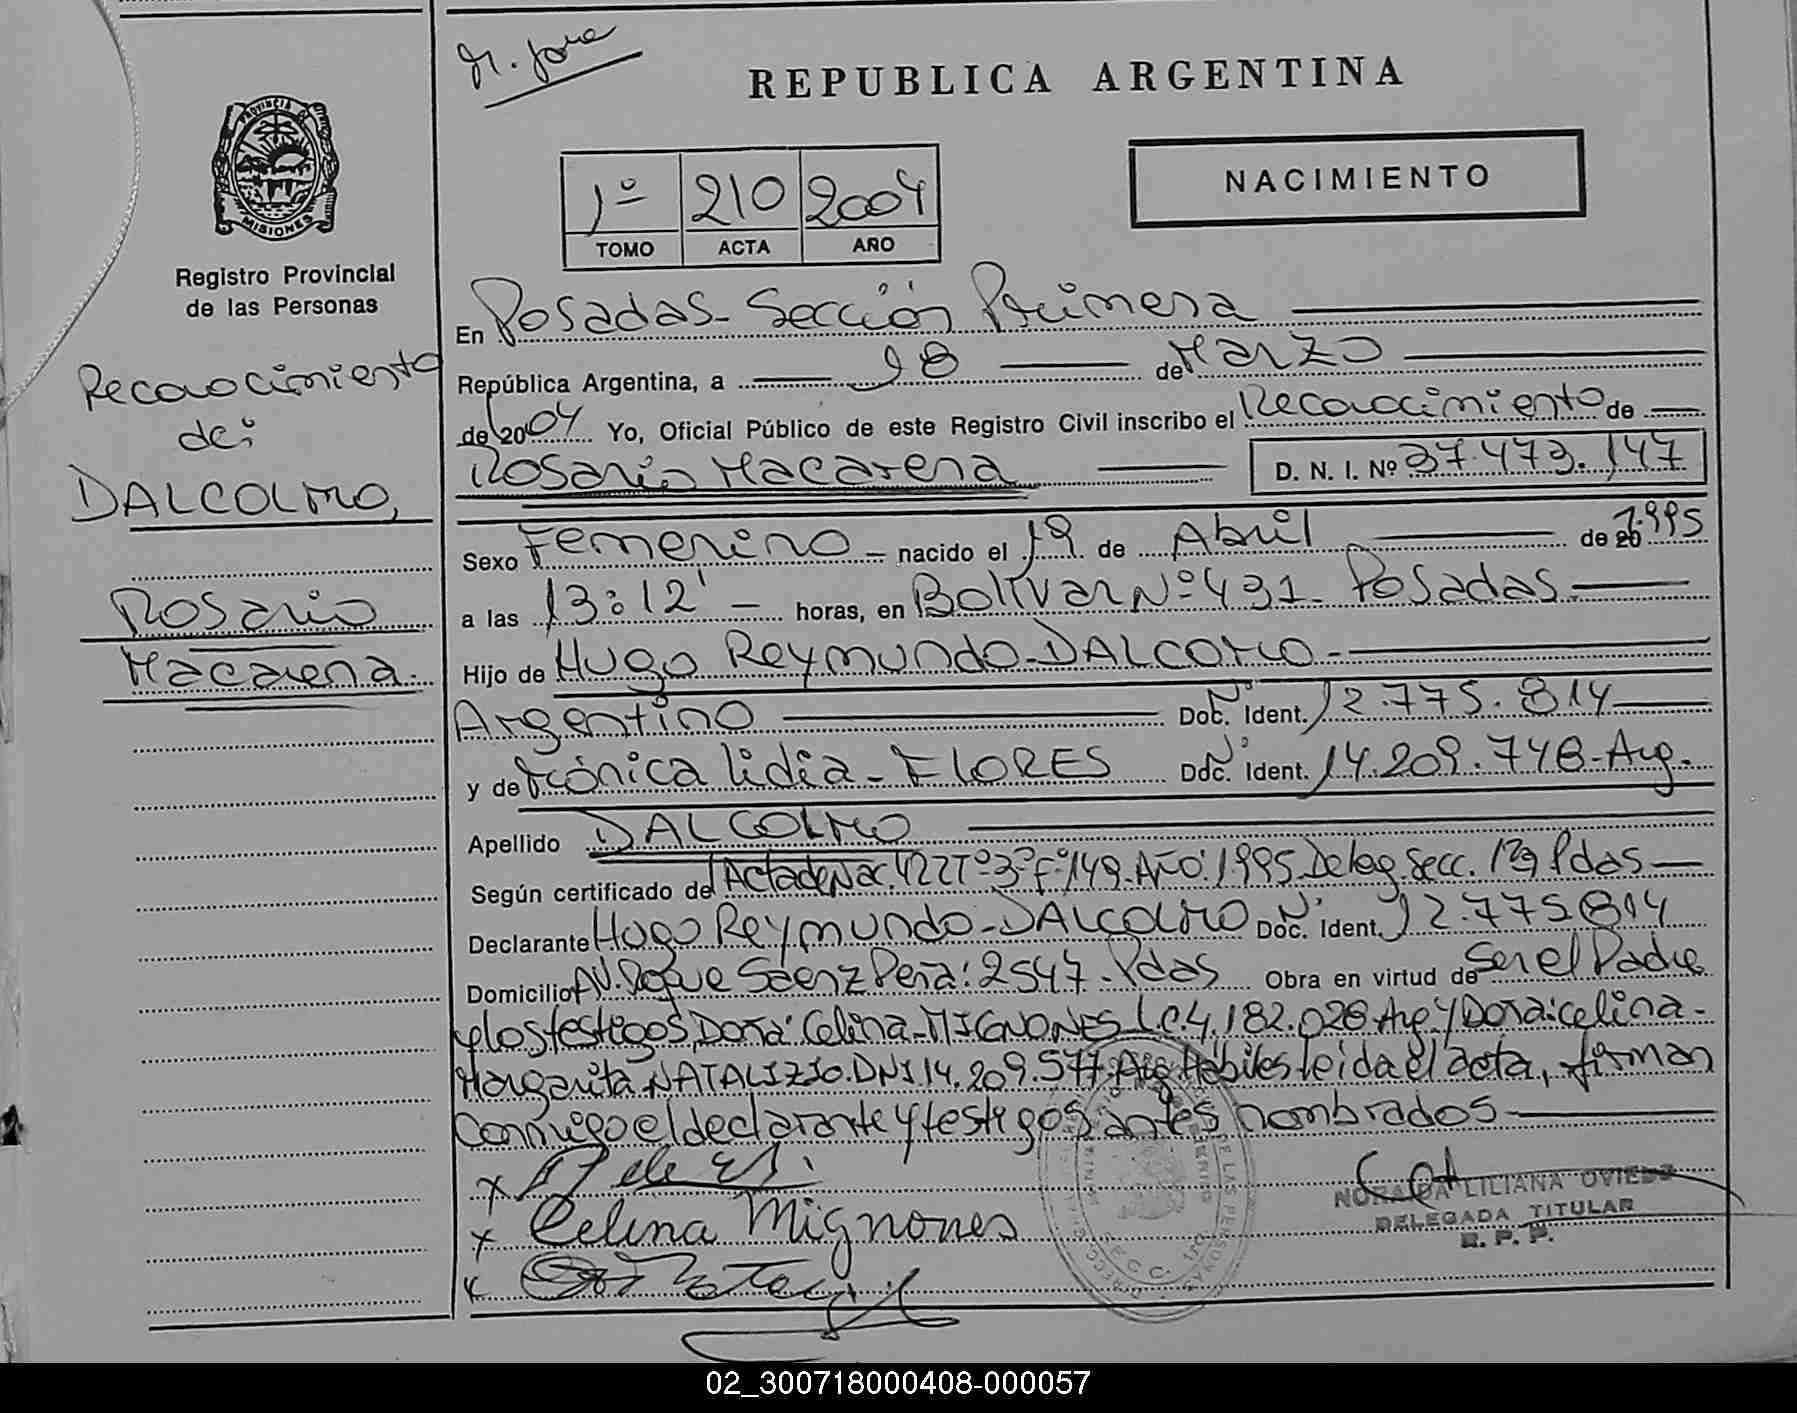 REPUBLICA ARGENTINA
NACIMIENTO
1º 210 2004
TOMO ACTA AÑO
PROVINCIA
MISIONES
Registro Provincial
de las Personas
Reconocimiento
de:
DALCOLMO,
Rosario
Macarena.
En Posadas - Sección Primera
República Argentina, a 18 de Marzo
de 2004 Yo, Oficial Público de este Registro Civil inscribo el Reconocimiento de
Rosario Macarena D. N. I. Nº 37.473.147
Sexo Femenino - nacido el 19 de Abril de 20 1.995
a las 13:12' - horas, en Bolivar Nº 431 - Posadas
Hijo de Hugo Reymundo - DALCOLMO -
Argentino Doc. Nº Ident. 12.775.814
y de Mónica Lidia - FLORES Doc. Nº Ident. 14.209.748 - Arg.
Apellido DALCOLMO
Según certificado de Acta de Nac. 422 Tº 3º Fº 149 - Año: 1.995 Deleg. Secc. 1ra Pdas
Declarante Hugo Reymundo - DALCOLMO Doc. Nº Ident. 12.775.814
Domicilio Av. Roque Saenz Peña: 2547 - Pdas Obra en virtud de Ser el Padre
y los testigos, Dora: Celina - MIGNONES L.C. 4.182.028 Arg. y Dora: Celina -
Margarita NATALIZIO. DNI 14.209.577. Arg. Habiles leida el acta, firman
conmigo el declarante y testigos antes nombrados
x
x Celina Mignones
x
LILIANA OVIEDO
DELEGADA TITULAR
R. P. P.
02_300718000408-000057